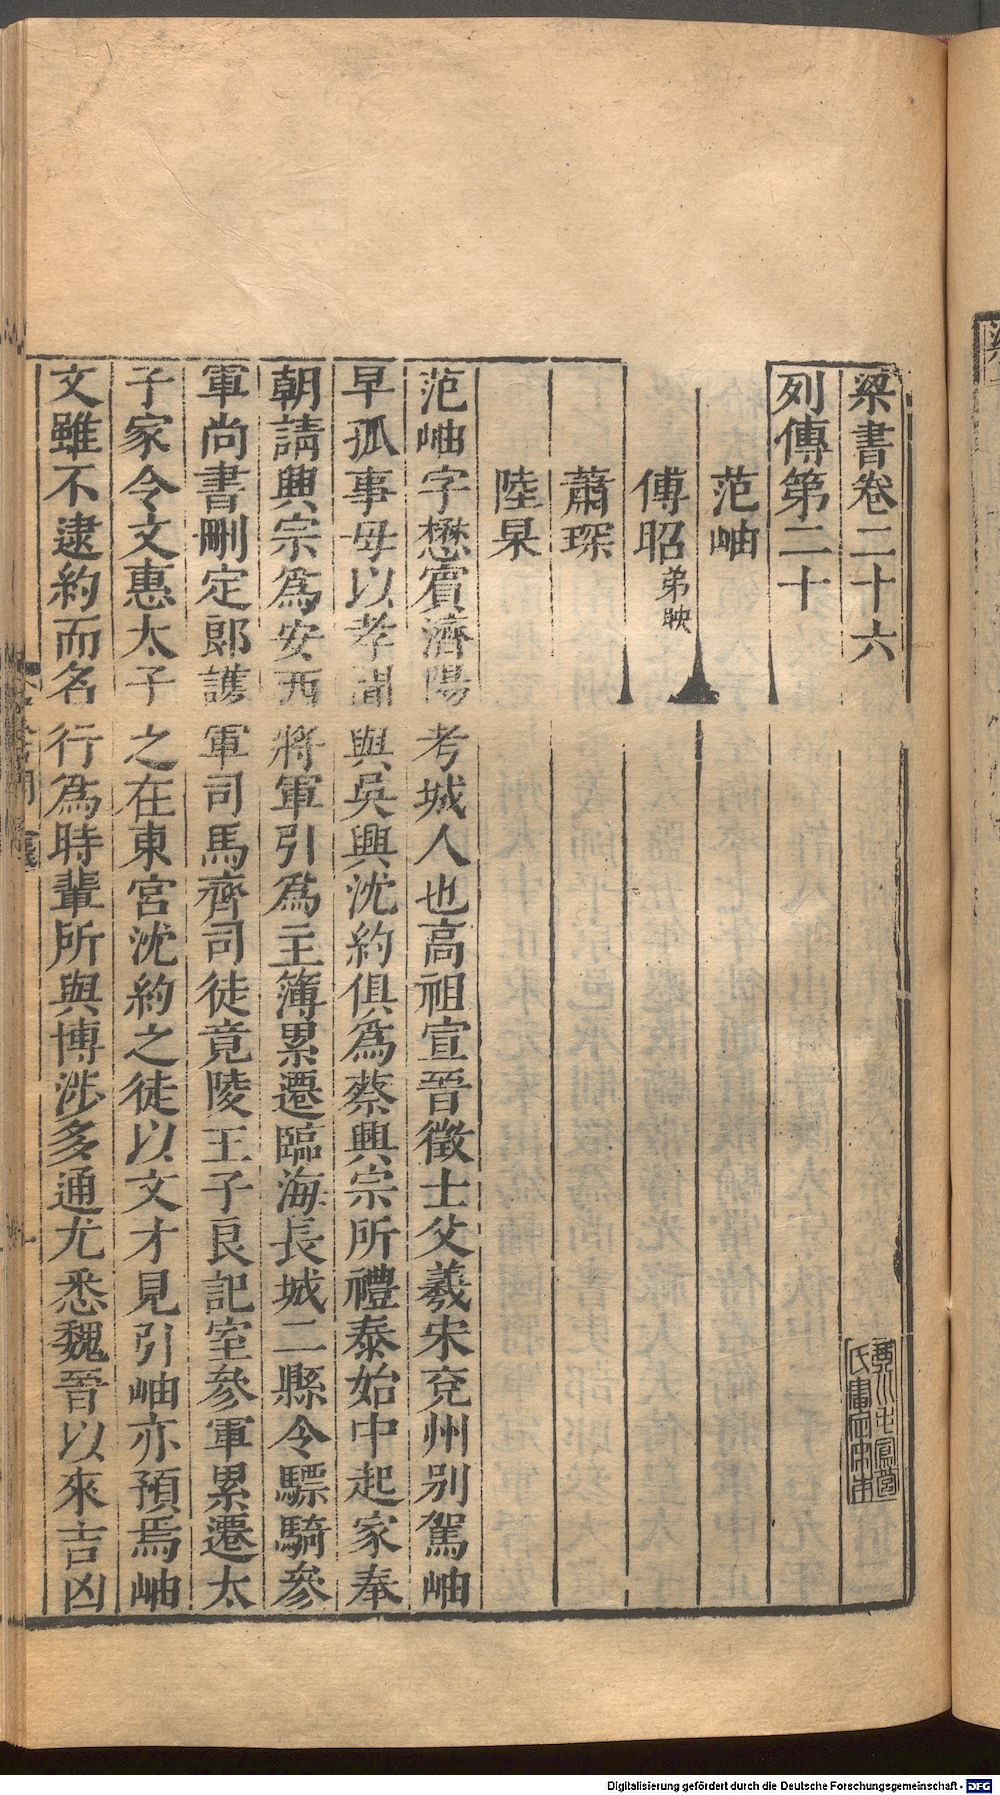 梁書卷二十六
列傳第二十
范岫
傅昭 弟映
蕭琛
陸杲
范岫字懋賓濟陽考城人也高祖宣晉徵士父羲宋兗州別駕岫
早孤事母以孝聞與吳興沈約俱爲蔡興宗所禮泰始中起家奉
朝請興宗爲安西將軍引爲主簿累遷臨海長城二縣令驃騎參
軍尚書刪定郎護軍司馬齊司徒竟陵王子良記室參軍累遷太
子家令文惠太子之在東宮沈約之徒以文才見引岫亦預焉岫
文雖不逮約而名行爲時輩所與博涉多通尤悉魏晉以來吉凶
Digitalisierung gefördert durch die Deutsche Forschungsgemeinschaft - DFG